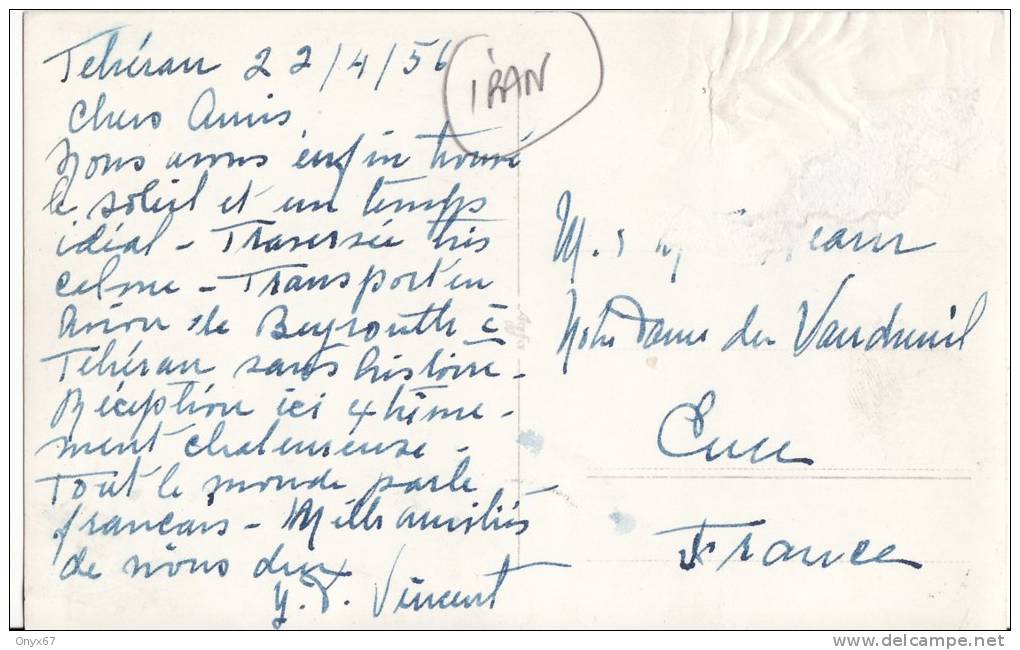 Téhéran 22/4/56
IRAN
Chers Amis
Nous avons enfin trouvé
le soleil et un temps
idéal - Traversée très
calme - Transport en
Avion de Beyrouth à
Téhéran sans histoire -
Réception ici extrême-
ment chaleureuse -
Tout le monde parle
français - Mille amitiés
de nous deux
Vincent
M.
Notre Dame du Vaudreuil
Eure
France
Onyx67
www.delcampe.net